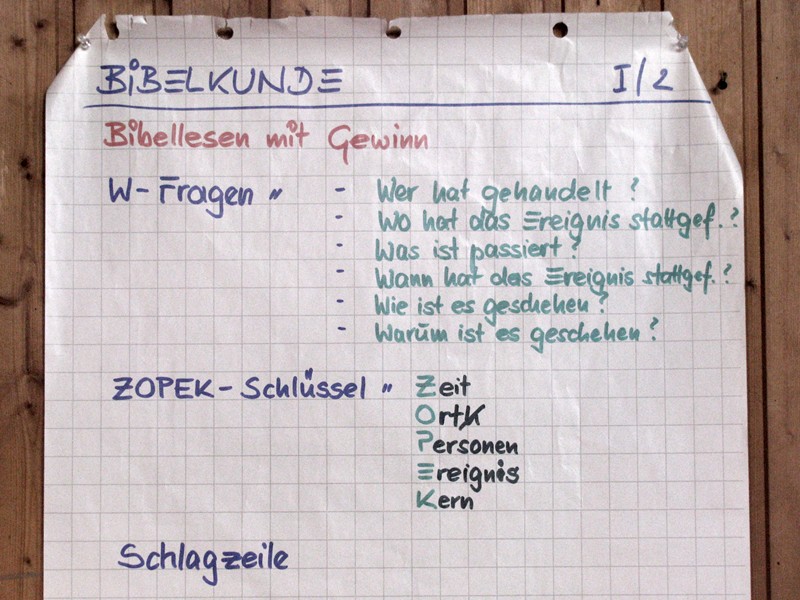 BIBELKUNDE I/2
Bibellesen mit Gewinn
W-Fragen " - Wer hat gehandelt?
- Wo hat das Ereignis stattgef.?
- Was ist passiert?
- Wann hat das Ereignis stattgef.?
- Wie ist es geschehen?
- Warum ist es geschehen?
ZOPEK-Schlüssel " Zeit
Ort
Personen
Ereignis
Kern
Schlagzeile